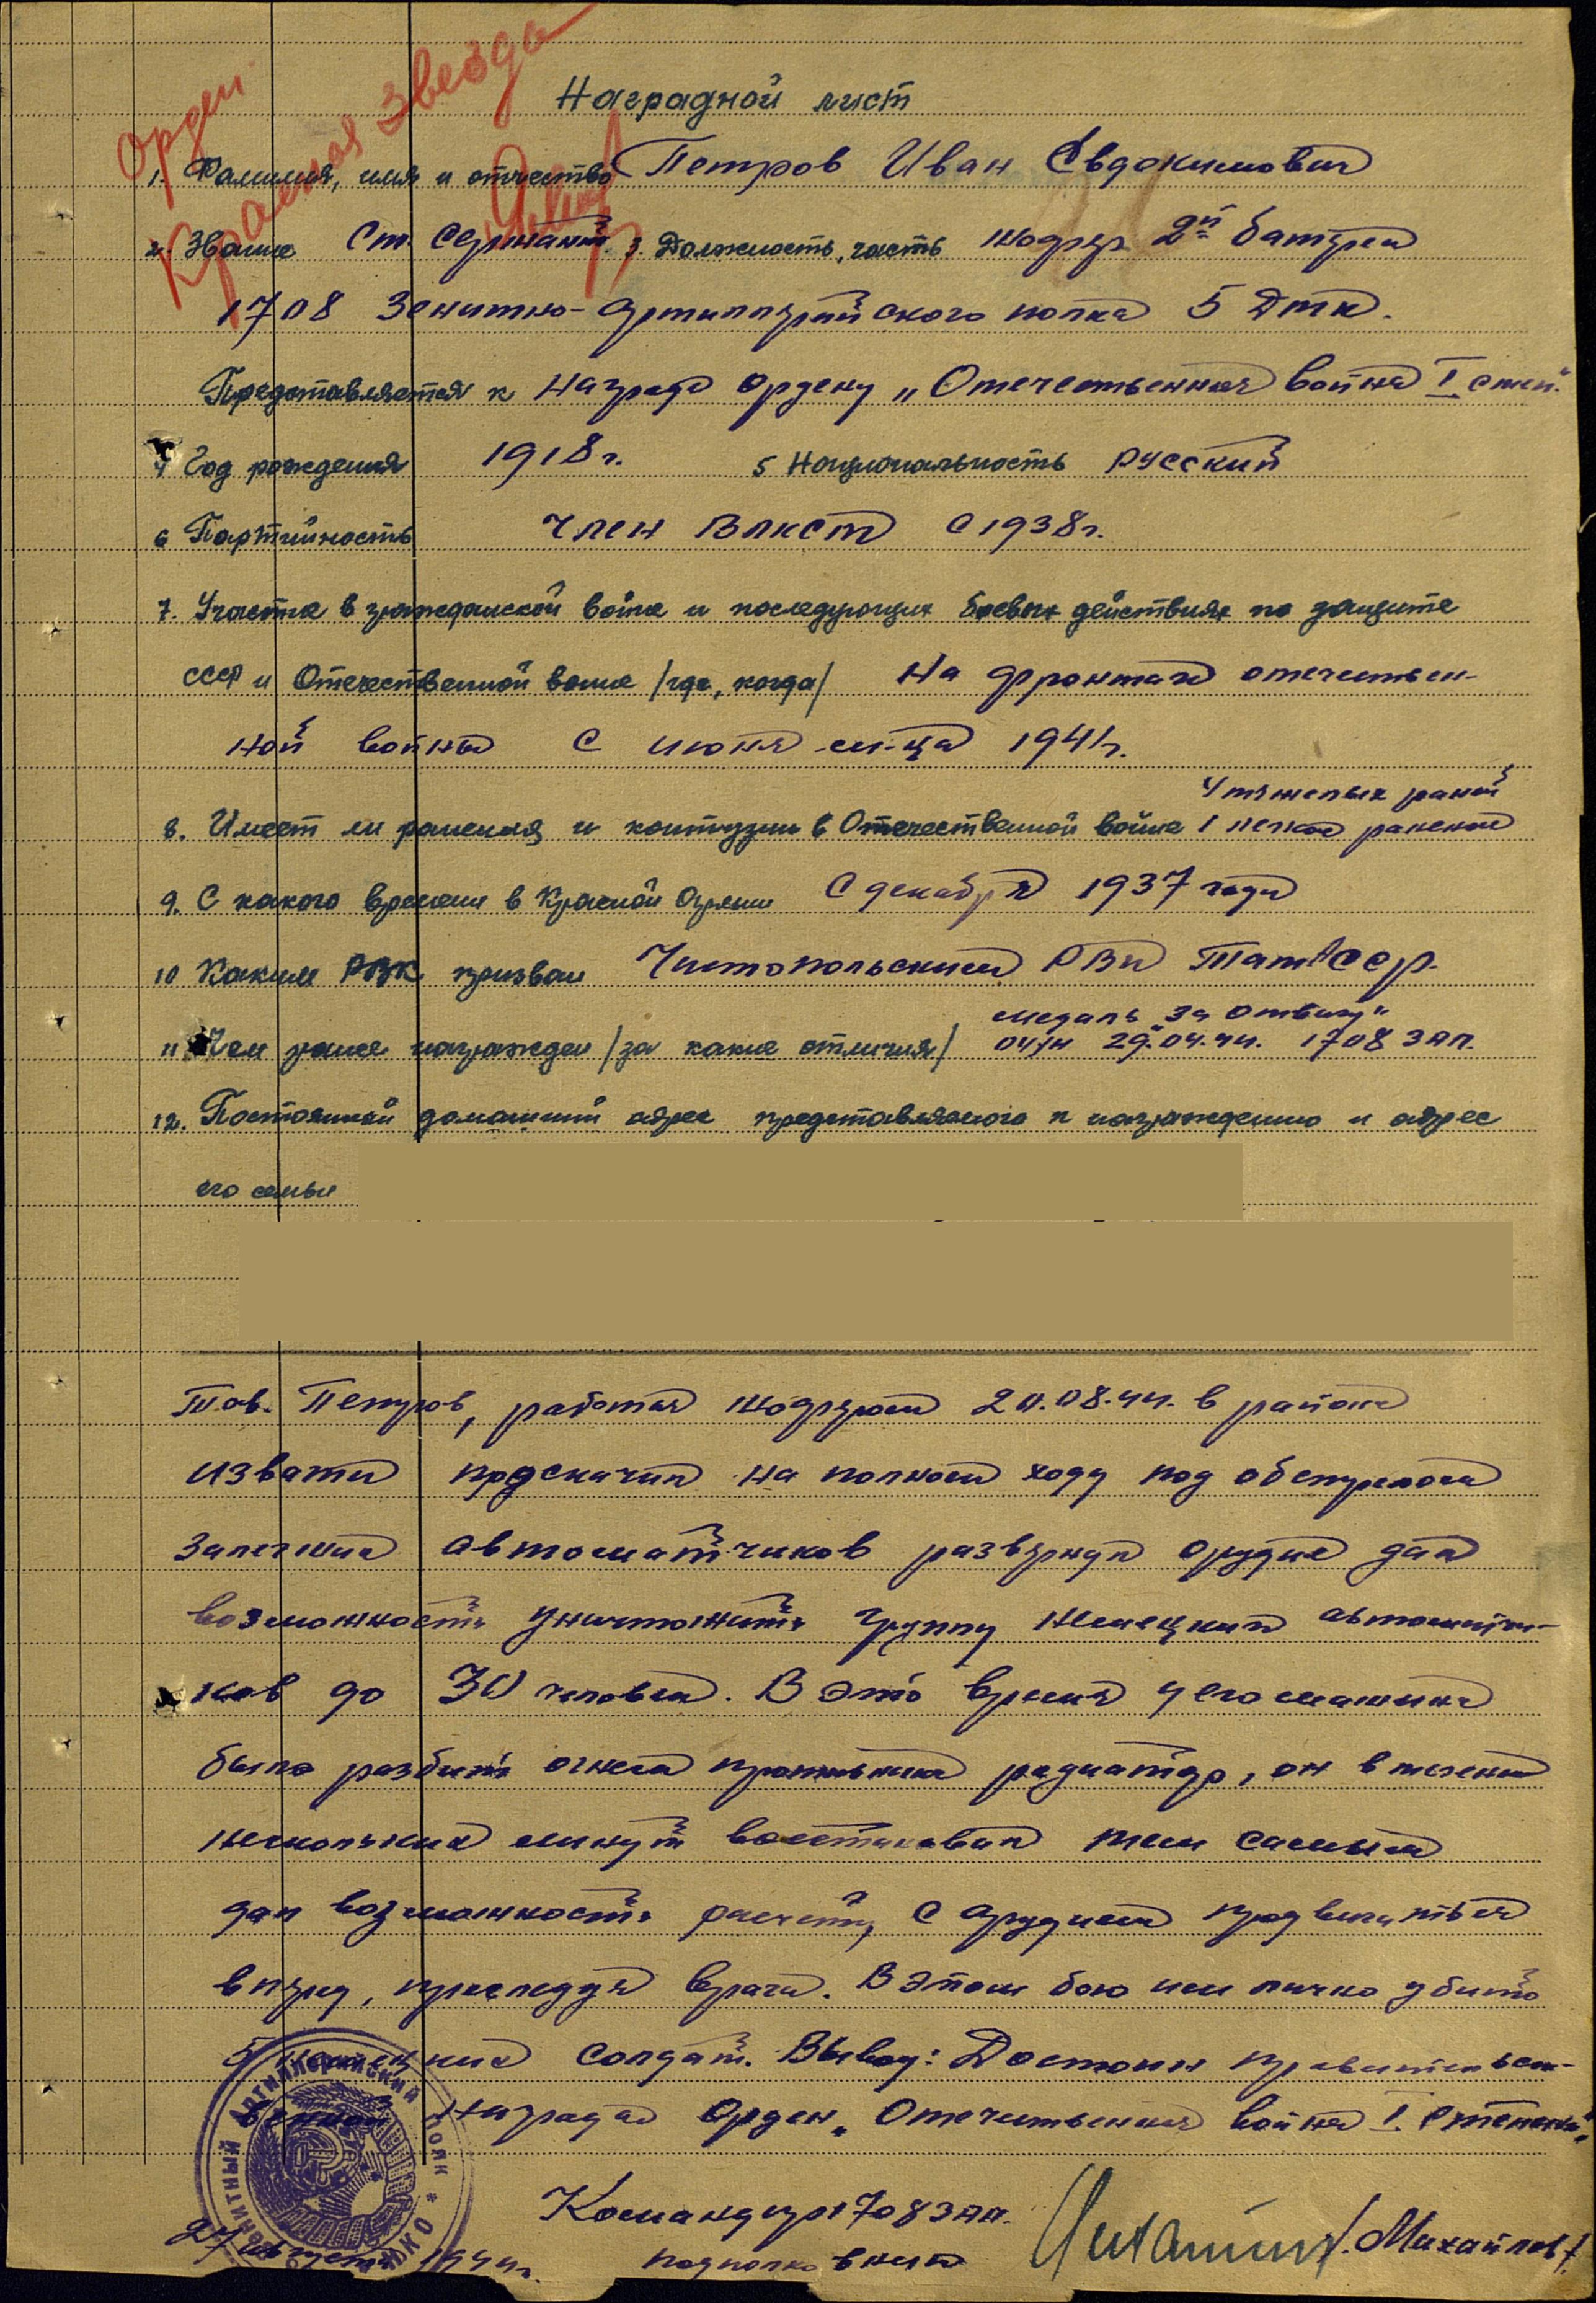 Орден
Красная Звезда
Наградной лист
1. Фамилия, имя и отчество Петров Иван Евдокимович
2. Звание Ст. Сержант 3. Должность, часть шофер 2й батареи
1708 Зенитно-Артиллерийского полка 5 Дтк.
Представляется к награде ордену „Отечественная война I степ."
4 Год рождения 1918 г. 5 Национальность русский
6 Партийность член ВЛКСМ с 1938 г.
7. Участие в гражданской войне и последующих боевых действиях по защите
СССР и Отечественной войне /где, когда/ На фронтах отечествен-
ной войны с июня м-ца 1941 г.
4 тяжелых раней
8. Имеет ли ранения и контузии в Отечественной войне 1 легкое ранение
9. С какого времени в Красной Армии С декабря 1937 года
10 Каким РВК призван Чистопольским РВК ТатАССР.
медаль „За Отвагу"
11 Чем ранее награжден /за какие отличия/ 29.04.44. 1708 ЗАП.
12. Постоянный домашний адрес представляемого к награждению и адрес
его семьи
Тов. Петров, работая шофером 20.08.44. в районе
подскачил на полном ходу под обстрелом
залегших автоматчиков развернул орудие дал
возможность уничтожить группу немецких автоматчи-
ков до 30 человек. В это время у его машины
было разбит огнем противника радиатор, он в течении
нескольких минут восстановил тем самым
дал возможность расчету с орудием продвигаться
вперед, преследуя врага. В этом бою им лично убито
5 немецких солдат. Вывод: Достоин правительст-
венной награды Орден „Отечественная война I степени"
Артиллерийский полк * НКО
Зенитный
Командир 1708 ЗАП.
27 августа 1944 г. подполковник /Михайлов/